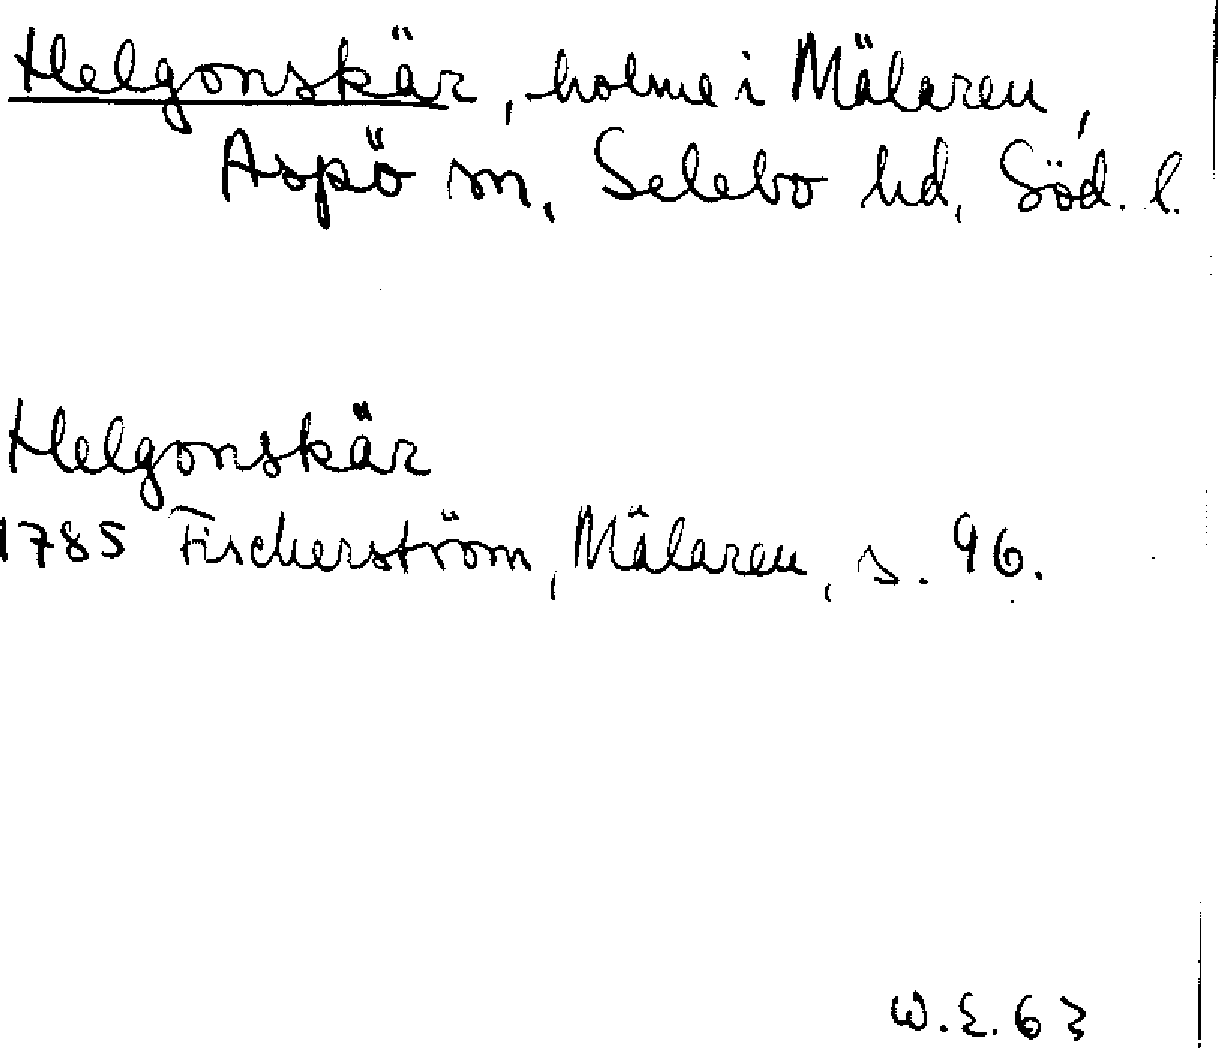 Helgonskär, holme i Mälaren,
Aspö sn, Selebo hd, Söd. l.
Helgonskär
1785 Fischerström, Mälaren, s. 96.
W.E. 63